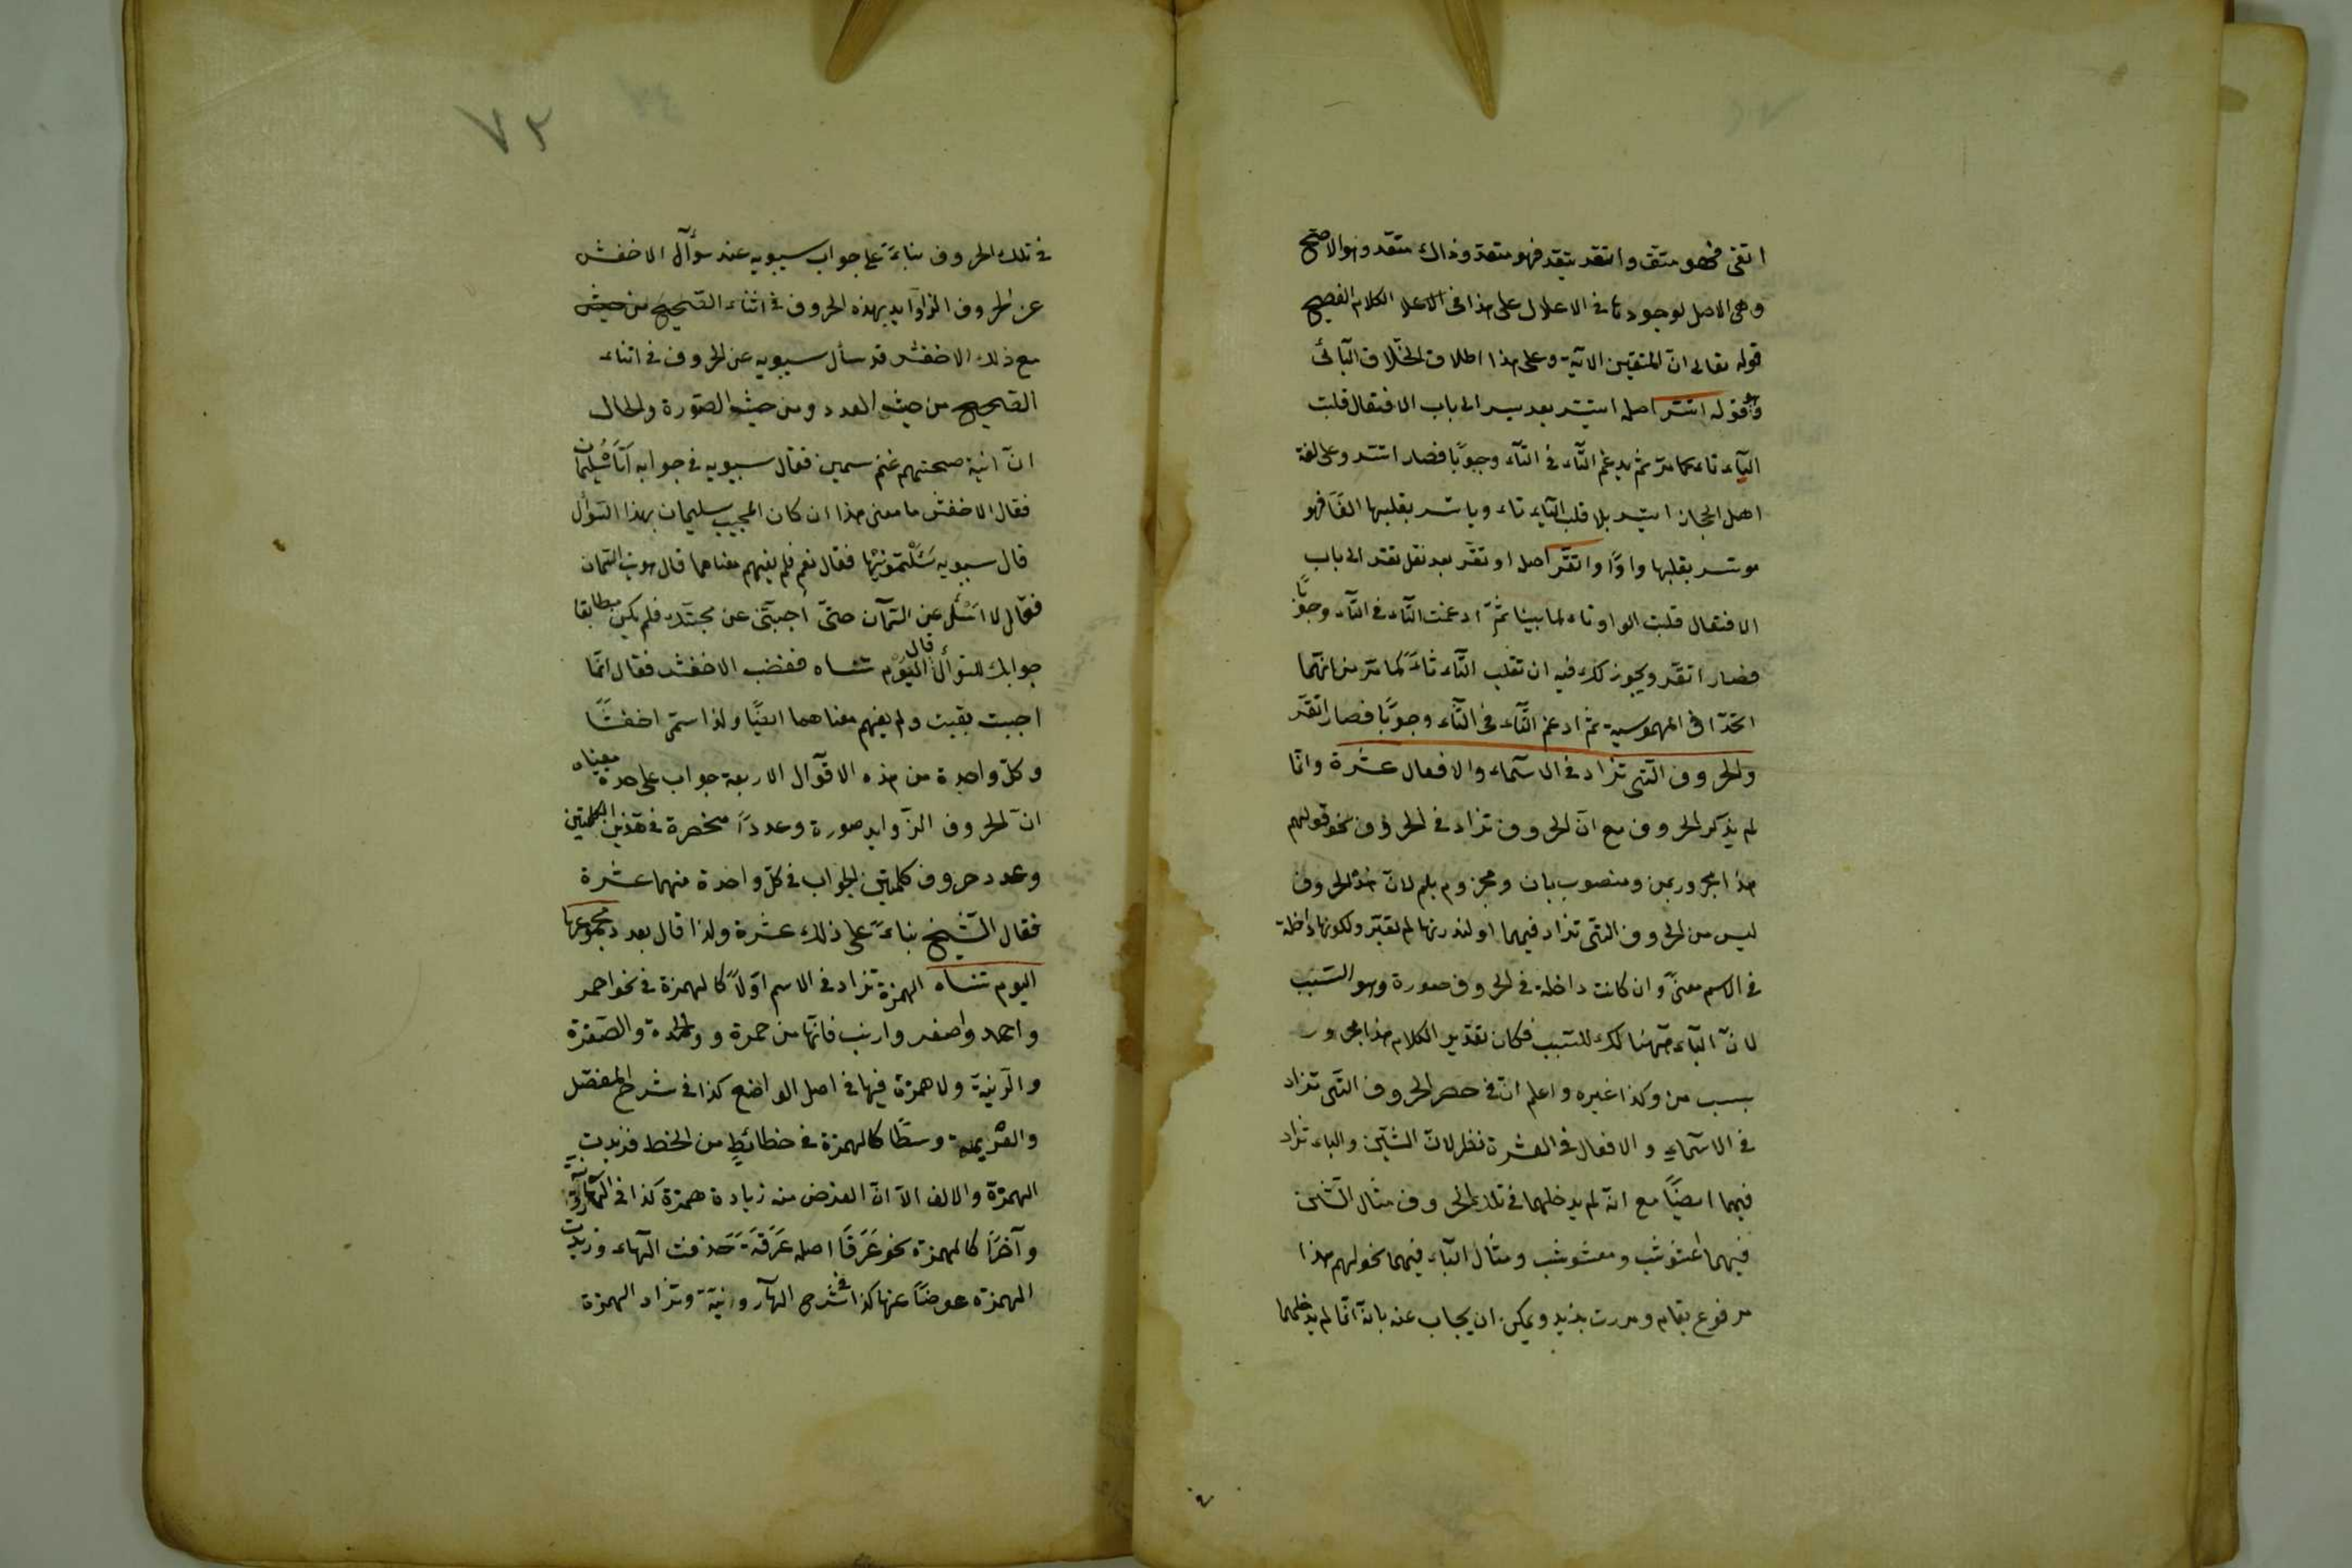 اتقى فهو متق واتقد يتقد فهو متقد وذاك متقد وهو الاصح
وهى الاصل لوجود تا فى الاعلال على هذا فى الاعلا الكلام الفصيح
قوله تعالى انّ المتقين الآية وعلى هذا اطلاق
وقوله اتسر اصله ايتسر بعد يسر الى باب الافتعال قلبت
اليآء تاء كما مرّ ثم يدغم التّآء فى التآء وجوبًا فصار اتسر وعلى لغة
اهل الحجاز ايتسر بلا قلب اليآء تاء وياتسر بقلبها الفًا فهو
موتسر بقلبها واوًا واتقر اصله اوتقر بعد نقل الى باب
الافتعال قلبت الواو تاء لما بينا ثمّ ادغمت التّآء فى التآء وجوبًا
فصار اتقر ويجوز لك فيه ان تقلب التّآء ثاءً كما مرّ من انهما
اتحدا فى المهموسية ثم ادغم الثّآء فى الثّآء وجوبًا فصار اثقر
والحروف التى تزاد فى الاسمآء والافعال عشرة وانّا
لم يذكر الحروف مع انّ الحروف تزاد فى الحروف نحو قولهم
هذا مجرور بمن ومنصوب بان ومجزوم بلم لانّ هذا الحروف
ليس من الحروف التى تزاد فيهما او لندرتها لم تعتبر ولكونها داخلة
فى الاسم معنىً وان كانت داخلة فى الحروف صورة وهو السّبب
لانّ البآء ههنا لك للسّبب فكان تقدير الكلام هذا مجرور
بسبب من وكذا غيره واعلم انّ فى حصر الحروف التى تزاد
فى الاسمآء والافعال فى العشرة نظر لانّ الشّين والباء تزاد
فيهما ايضًا مع انّه لم يدخلهما فى تلك الحروف مثال الشّين
فيهما اعشوشب ومعشوشب ومثال البآء فيهما نحو لهم هذا
مرفوع بقام ومررت بزيد ويمكن ان يجاب عنه بانّه انّا لم يدخلهما
٧٢
فى تلك الحروف بناءً على جواب سيبويه عند سؤآل الاخفش
عن الحروف الزوآيد بهذه الحروف فى اثناء الصّحيح من حيث
مع ذلك الاخفش قد سأل سيبويه عن الحروف فى اثناء
الصّحيح من حيث العدد ومن حيث الصّورة والحال
انّ صحبتهم غنم سمين فقال سيبويه فى جوابه اتاه سليمان
فقال الاخفش ما معنى هذا ان كان المجيب سليمان بهذا السّؤال
قال سيبويه سَئَلْتمونيها فقال نعم فلم يفهم معناهما قال هويت السّمان
فقال لا اسئل عن السّمآن حتى اجبتنى عن فلم يكن مطابقا
جوابك للسّؤال قال اليوم تنساه فغضب الاخفش فقال انّا
اجبت بقيت ولم يفهم معناهما ايضًا ولذا سمّى اخفشًا
وكلّ واحدة من هذه الاقوآل الاربعة جواب على حدة معناه
انّ الحروف الزّوايد صورة وعددًا منحصرة فى هذين الكلمتين
وعدد حروف كلمتين الجواب فى كلّ واحدة منهما عشرة
فقال الشّيخ بناءً على ذلك عشرة ولذا قال بعد مجموعها
اليوم تنساه الهمزة تزاد فى الاسم اوّلاً كالهمزة فى نحو احمر
واحمد واصفر وارنب فانّها من حمرة والحمدة والصّفرة
والرّنية ولا همزة فيها فى اصل الواضع كذا فى شرح المفصّل
وسطًا كالهمزة فى خطائط من الخط فزيدت
الهمزة والالف الاّ انّ الغرض منه زيادة همزة كذا فى الهارونية
وآخرًا كالهمزة نحو عَرَقَا اصله عَرَقَةَ حَذفت الهاء وزيدت
الهمزة عوضًا عنها كذا فى شرح الهآرونيّة وتزاد الهمزة